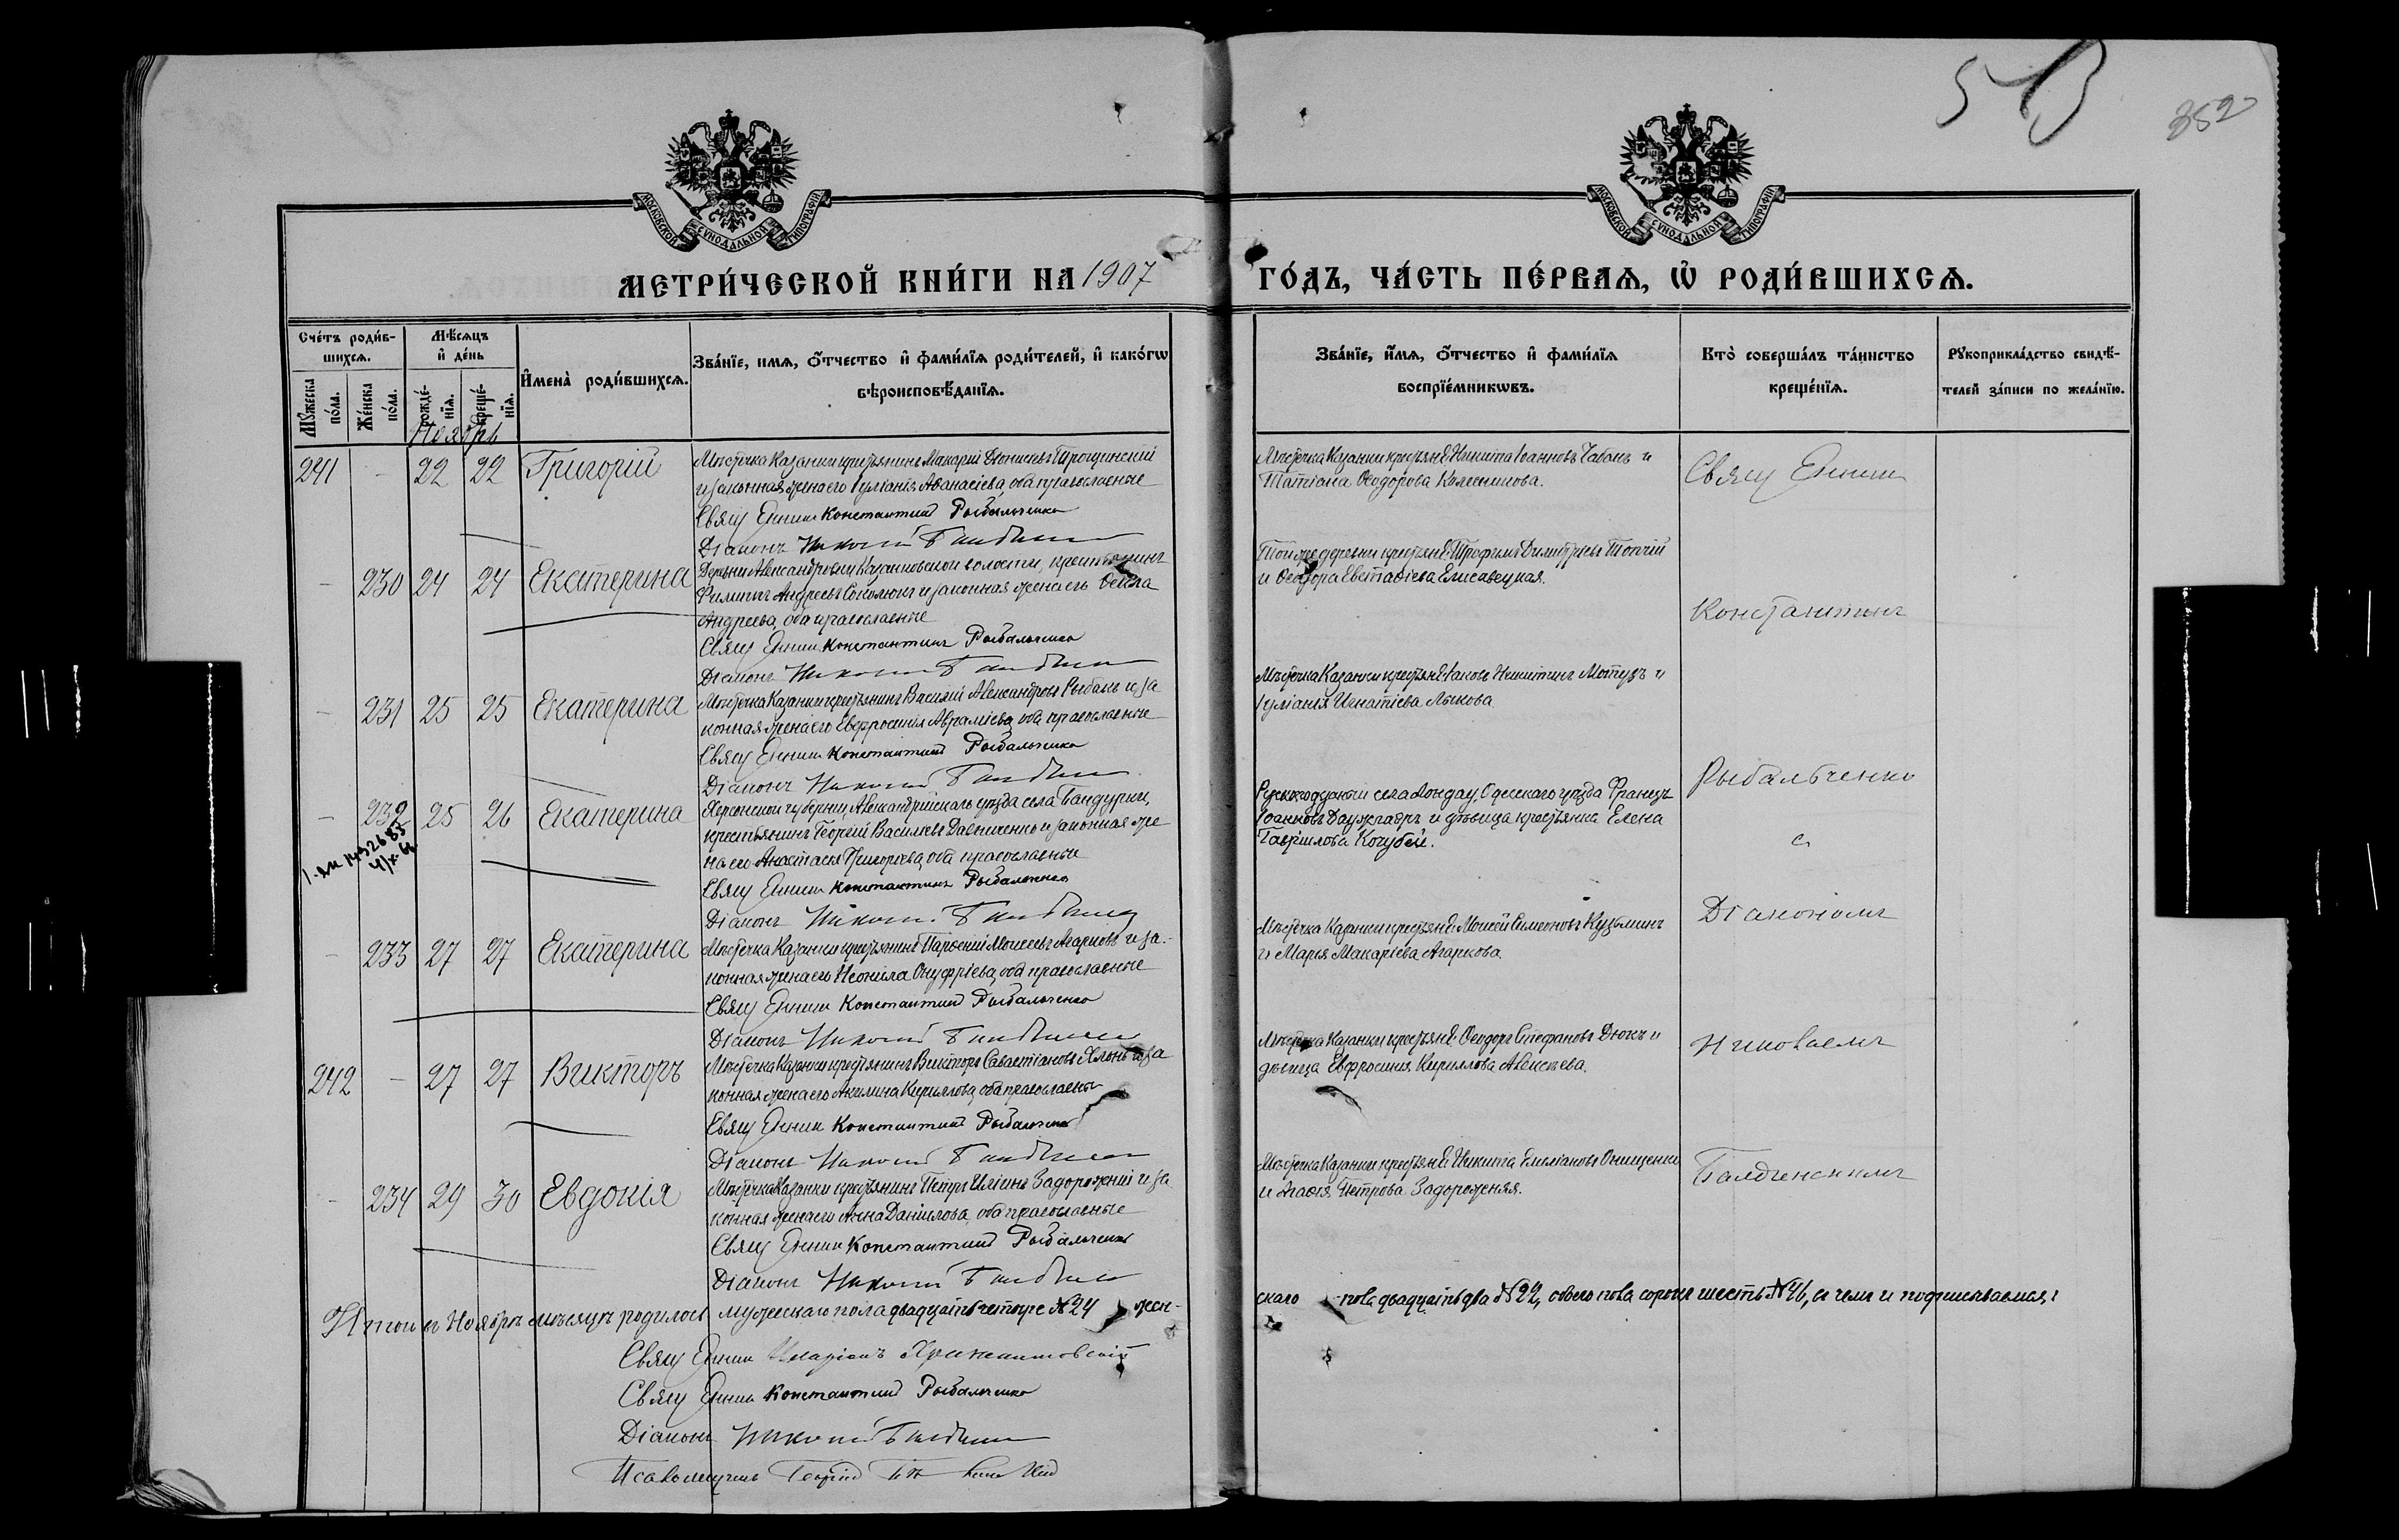 513
352
МОСКОВСКОЙ СУНОДАЛЬНОЙ ТИПОГРАФІИ
МОСКОВСКОЙ СУНОДАЛЬНОЙ ТИПОГРАФІИ
МЕТРИ́ЧЕСКОЙ КНИ́ГИ НА 1907
ГО́ДЪ, ЧА́СТЬ ПЕ́РВАѦ, Ѡ҆ РОДИ́ВШИХСѦ.
Сче́тъ роди́в-
шихсѧ.
Мꙋ́жеска по́ла.
Же́нска по́ла.
Мѣ́сѧцъ
и҆ де́нь
рожде́-
нїѧ.
креще́-
нїѧ.
И҆мена̀ роди́вшихсѧ.
Зва́нїе, имѧ, ѻ҆́тчество и҆ фами́лїѧ роди́телей, и҆ како́гѡ
вѣроисповѣ́данїѧ.
Зва́нїе, и҆́мѧ, ѻ҆́тчество и҆ фами́лїѧ
воспрїе́мникѡвъ.
Кто̀ соверша́лъ та́инство
креще́нїѧ.
Рꙋкоприкла́дство свидѣ́-
телей за́писи по жела́нїю.
Ноябрь
241 - 22 22 Григорій
Мѣстечка Казанки крестьянинъ Макарій Діонисьевъ Трощинскій
и законная жена его Іуліанія Аѳанасіева, оба православные
Свящ Константинъ Рыбальченко
Діаконъ Николай
Мѣстечка Казанки крестьяне Никита Іоанновъ Чабанъ и
Татіана Ѳеодорова Колесникова.
Свящ
- 230 24 24 Екатерина
Деревни Александровки Казанковской волости, крестьянинъ
Филиппъ Андреевъ Соколюкъ и законная жена его Ѳекла
Андреева, оба православные
Свящ Константинъ Рыбальченко
Діаконъ Николай
Той же деревни крестьяне Трофимъ Димитріевъ Топчій
и Ѳеодора Евстаѳіева Елисавецкая.
Константинъ
- 231 25 25 Екатерина
Мѣстечка Казанки крестьянинъ Василій Александровъ Рыбакъ и за
конная жена его Евфросинія Авраміева, оба православные
Свящ Константинъ Рыбальченко
Діаконъ Николай
Мѣстечка Казанки крестьяне Іаковъ Никитинъ Мотузъ и
Іуліанія Игнатіева Лыкова
Рыбальченко
- 232 25 26 Екатерина
Херсонской губерніи, Александрійскаго уѣзда села Бандурки,
крестьянинъ Георгій Васильевъ Давниченко и законная же
на его Анастасія Григорьева, оба православные
Свящ Константинъ Рыбальченко
Діаконъ Николай
села Лондау, Одесскаго уѣзда Францъ
Іоанновъ и дѣвица крестьянка Елена
Гавріилова Кочубей.
с
- 233 27 27 Екатерина
Мѣстечка Казанки крестьянинъ Парѳеній Моисеевъ Агарковъ и за-
конная жена его Неонила Онуфріева, оба православные
Свящ Константинъ Рыбальченко
Діаконъ Николай
Мѣстечка Казанки крестьяне Моисей Симеоновъ Кузьминъ
и Марія Макаріева Агаркова.
Діакономъ
242 - 27 27 Викторъ
Мѣстечка Казанки крестьянинъ Викторъ Савастіановъ и за
конная жена его Акилина Кириллова, оба православны
Свящ Константинъ Рыбальченко
Діаконъ Николай
Мѣстечка Казанки крестьяне Ѳеодоръ Стефановъ Дюкъ и
дѣвица Евфросинія Кириллова Алексѣева.
Николаемъ
- 234 29 30 Евдокія
Мѣстечка Казанки крестьянинъ Петръ Иліинъ Задорожній и за
конная жена его Анна Даніилова, оба православные
Свящ Константинъ Рыбальченко
Діаконъ Николай
Мѣстечка Казанки крестьяне Никита Емиліановъ Онищенко
и Агаѳія Петрова Задорожняя.
Итого въ Ноябрѣ мѣсяцѣ родилось мужескаго пола двадцать четыре №24 жен-
скаго пола двадцать два №22, обоего пола сорокъ шесть №46, въ чемъ и подписываемся:
Свящ
Свящ Константинъ Рыбальченко
Діаконъ Николай
Псаломщикъ Георгій